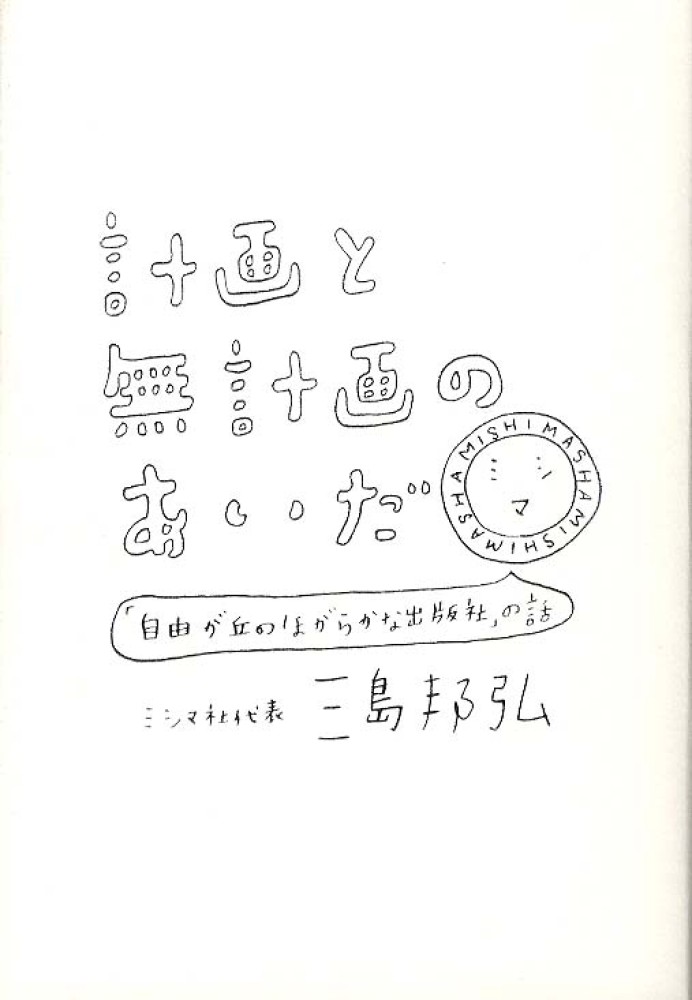 計画と
無計画の
あいだ
MISHIMASHAMISHIMASHAMISHIMASHA
ミシマ
「自由が丘のほがらかな出版社」の話
ミシマ社代表 三島邦弘